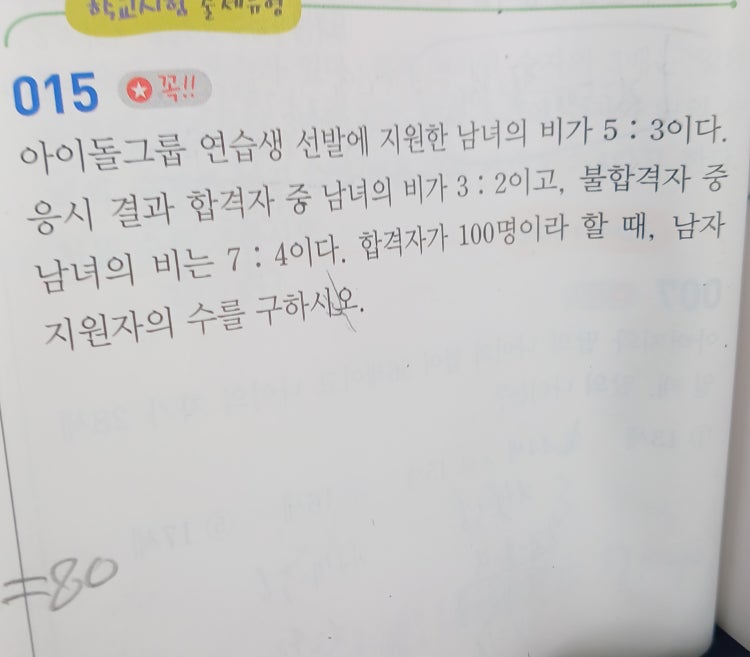 학교시험 문제유형
015 꼭!!
아이돌그룹 연습생 선발에 지원한 남녀의 비가 5 : 3이다.
응시 결과 합격자 중 남녀의 비가 3 : 2이고, 불합격자 중
남녀의 비는 7 : 4이다. 합격자가 100명이라 할 때, 남자
지원자의 수를 구하시오.
=80